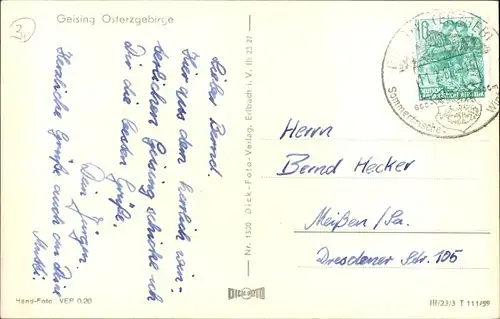 Geising Osterzgebirge
Lieber Bernd.
Hier aus dem herrlich win-
terlichen Geising schicke ich
Dir die besten Grüße.
Dein Jürgen.
Herzliche Grüße auch an Deine
Mutti.
Hand-Foto VEP 0.20
Nr. 1330 Dick-Foto-Verlag, Erlbach i. V. Ifh 23 27
DICK FOTO
10
DEUTSCHE
Sommerfrische
Herrn
Bernd Hecker
Meißen/Sa.
Dresdener Str. 105
III/23/3 T 111/59